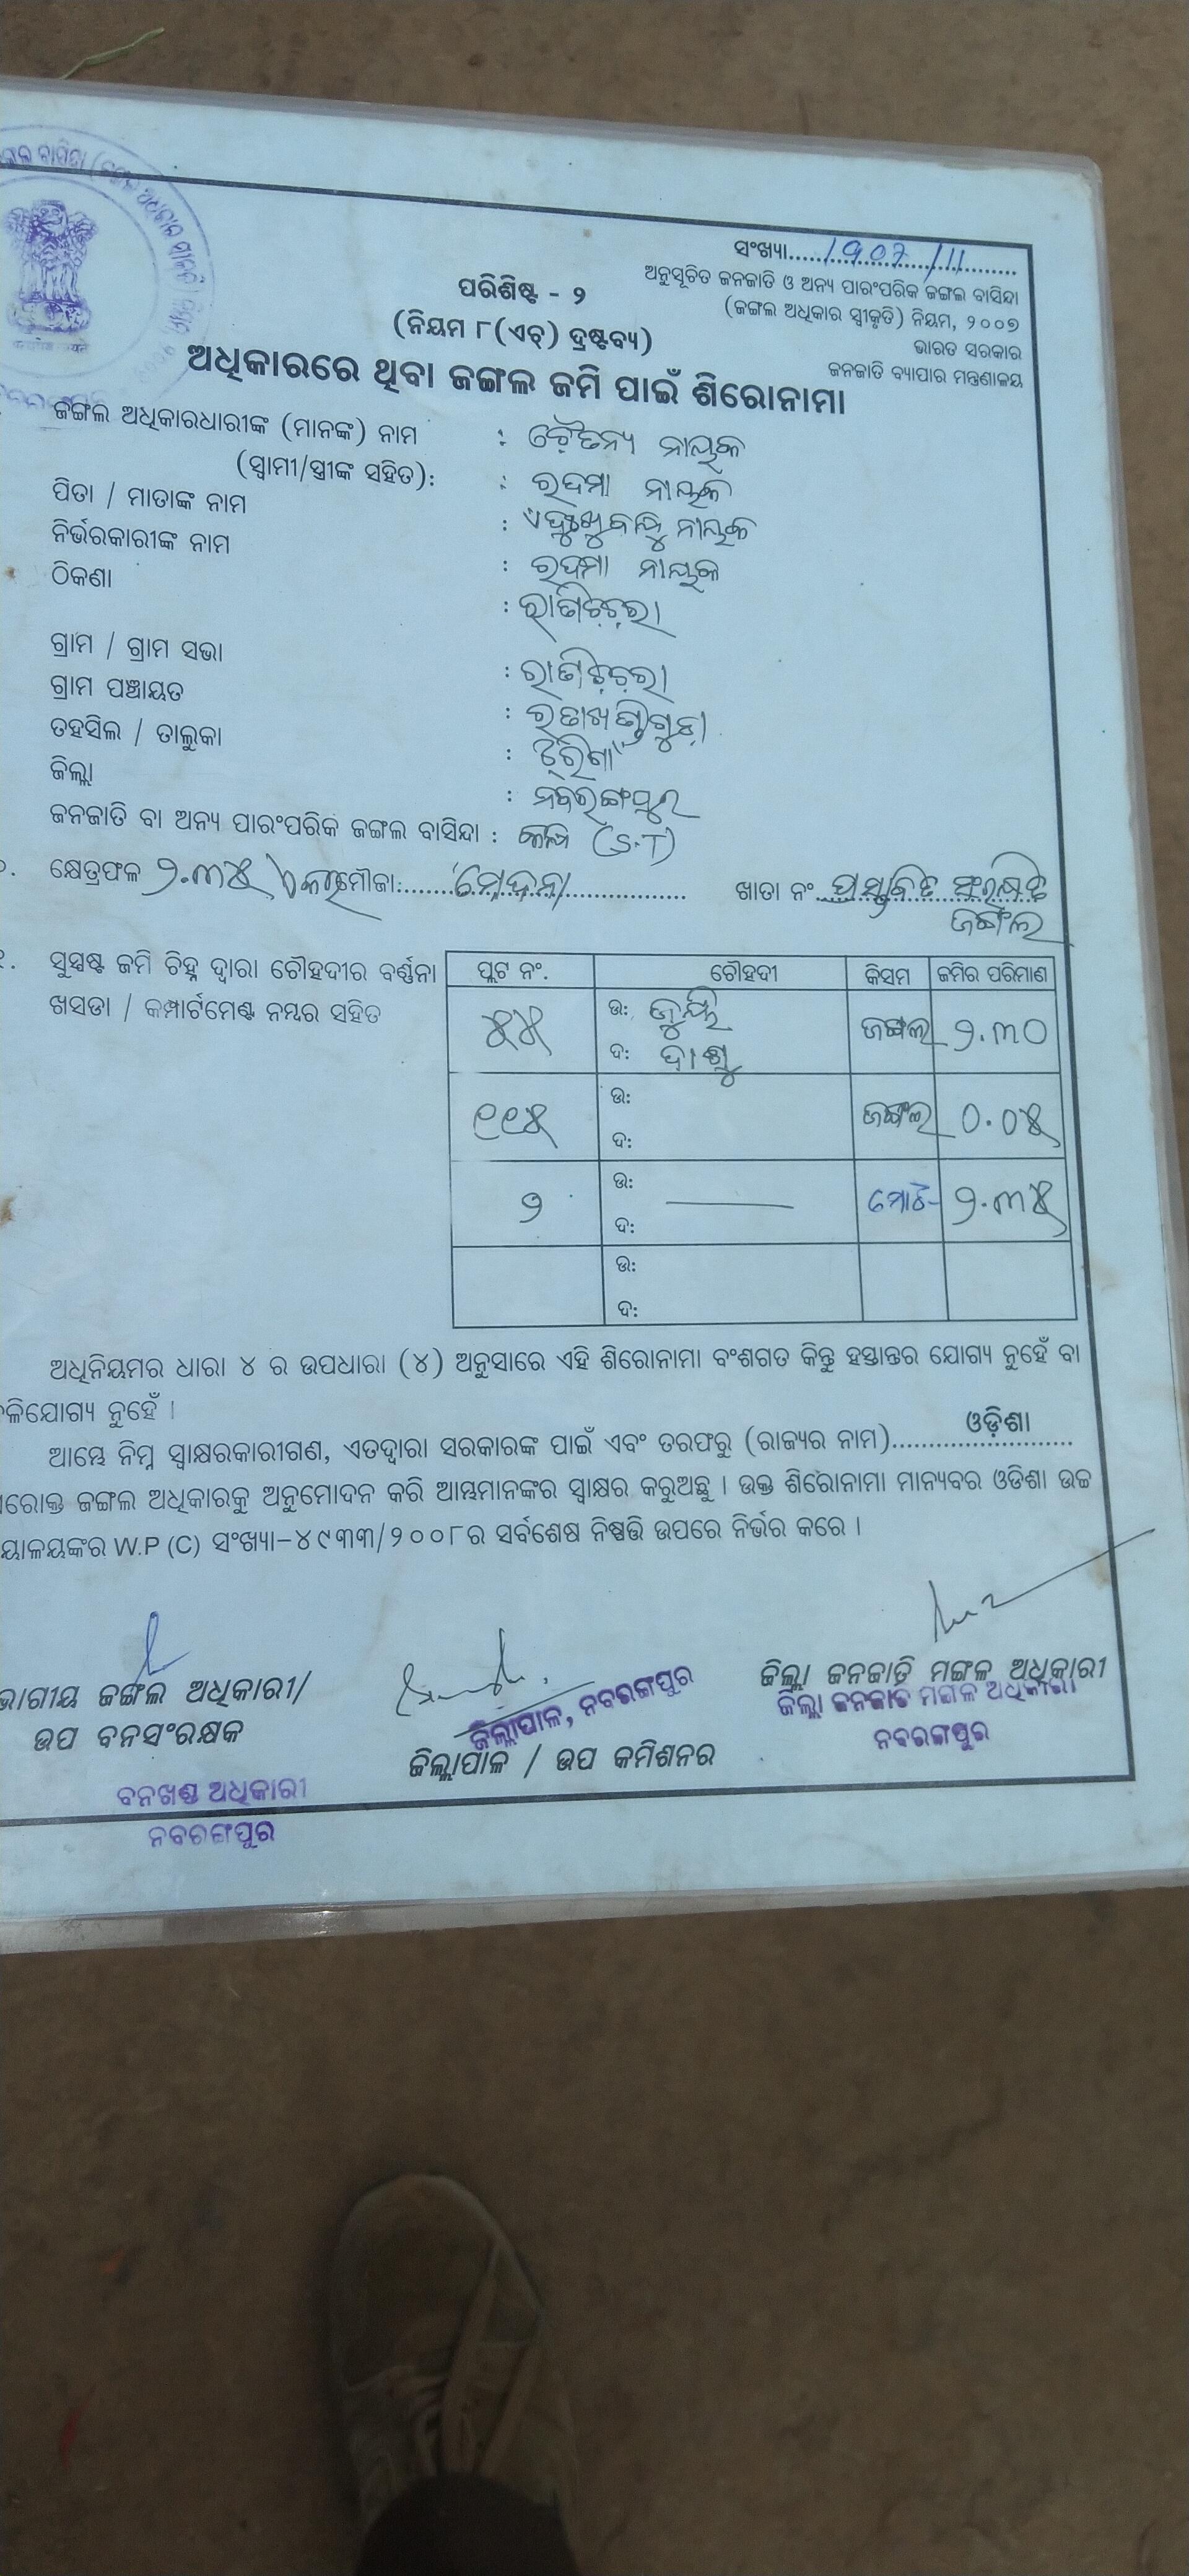 ସଂଖ୍ୟା.....1907/11
ଅନୁସୂଚିତ ଜନଜାତି ଓ ଅନ୍ୟ ପାରଂପରିକ ଜଙ୍ଗଲ ବାସିନ୍ଦା
(ଜଙ୍ଗଲ ଅଧିକାର ସ୍ୱୀକୃତି) ନିୟମ, ୨୦୦୭
ଭାରତ ସରକାର
ଜନଜାତି ବ୍ୟାପାର ମନ୍ତ୍ରଣାଳୟ
ପରିଶିଷ୍ଟ - ୨
(ନିୟମ ୮(ଏଚ୍) ଦ୍ରଷ୍ଟବ୍ୟ)
ଅଧିକାରରେ ଥିବା ଜଙ୍ଗଲ ଜମି ପାଇଁ ଶିରୋନାମା
ଜଙ୍ଗଲ ଅଧିକାରଧାରୀଙ୍କ (ମାନଙ୍କ) ନାମ : ଚୈତନ୍ୟ ନାୟକ
(ସ୍ୱାମୀ/ସ୍ତ୍ରୀଙ୍କ ସହିତ): : ରଦମା ନାୟକ
ପିତା / ମାତାଙ୍କ ନାମ : ନାୟକ
ନିର୍ଭରକାରୀଙ୍କ ନାମ : ରଦମା ନାୟକ
ଠିକଣା :
ଗ୍ରାମ / ଗ୍ରାମ ସଭା :
ଗ୍ରାମ ପଞ୍ଚାୟତ : ରତାଖଣ୍ଡିଗୁଡ଼ା
ତହସିଲ / ତାଲୁକା :
ଜିଲ୍ଲା : ନବରଙ୍ଗପୁର
ଜନଜାତି ବା ଅନ୍ୟ ପାରଂପରିକ ଜଙ୍ଗଲ ବାସିନ୍ଦା : (S.T)
କ୍ଷେତ୍ରଫଳ ୨.୩୫ ମୌଜା:..... ଖାତା ନଂ ପ୍ରସ୍ତାବିତ ସଂରକ୍ଷିତ
ଜଙ୍ଗଲ
ସୁସ୍ପଷ୍ଟ ଜମି ଚିହ୍ନ ଦ୍ୱାରା ଚୌହଦୀର ବର୍ଣ୍ଣନା
ଖସଡା / କମ୍ପାର୍ଟମେଣ୍ଟ ନମ୍ବର ସହିତ
ପ୍ଲଟ ନଂ. ଚୌହଦୀ କିସମ ଜମିର ପରିମାଣ
୫୫ ଉ: ଜଙ୍ଗଲ ୨.୩୦
ଦ:
୧୧୫ ଉ: ଜଙ୍ଗଲ ୦.୦୫
ଦ:
୨ ଉ: ମୋଟ- ୨.୩୫
ଦ:
ଉ:
ଦ:
ଅଧିନିୟମର ଧାରା ୪ ର ଉପଧାରା (୪) ଅନୁସାରେ ଏହି ଶିରୋନାମା ବଂଶଗତ କିନ୍ତୁ ହସ୍ତାନ୍ତର ଯୋଗ୍ୟ ନୁହେଁ ବା
ଳିଯୋଗ୍ୟ ନୁହେଁ ।
ଆମ୍ଭେ ନିମ୍ନ ସ୍ୱାକ୍ଷରକାରୀଗଣ, ଏତଦ୍ୱାରା ସରକାରଙ୍କ ପାଇଁ ଏବଂ ତରଫରୁ (ରାଜ୍ୟର ନାମ)..... ଓଡ଼ିଶା
ରୋକ୍ତ ଜଙ୍ଗଲ ଅଧିକାରକୁ ଅନୁମୋଦନ କରି ଆମ୍ଭମାନଙ୍କର ସ୍ୱାକ୍ଷର କରୁଅଛୁ । ଉକ୍ତ ଶିରୋନାମା ମାନ୍ୟବର ଓଡିଶା ଉଚ୍ଚ
ୟାଳୟଙ୍କର W.P (C) ସଂଖ୍ୟା-୪୯୩୩/୨୦୦୮ର ସର୍ବଶେଷ ନିଷ୍ପତ୍ତି ଉପରେ ନିର୍ଭର କରେ ।
ଭାଗୀୟ ଜଙ୍ଗଲ ଅଧିକାରୀ/
ଉପ ବନସଂରକ୍ଷକ
ବନଖଣ୍ଡ ଅଧିକାରୀ
ନବରଙ୍ଗପୁର
ଜିଲ୍ଲାପାଳ, ନବରଙ୍ଗପୁର
ଜିଲ୍ଲାପାଳ / ଉପ କମିଶନର
ଜିଲ୍ଲା ଜନଜାତି ମଙ୍ଗଳ ଅଧିକାରୀ
ଜିଲ୍ଲା ଜନଜାତି ମଙ୍ଗଳ ଅଧିକାରୀ
ନବରଙ୍ଗପୁର